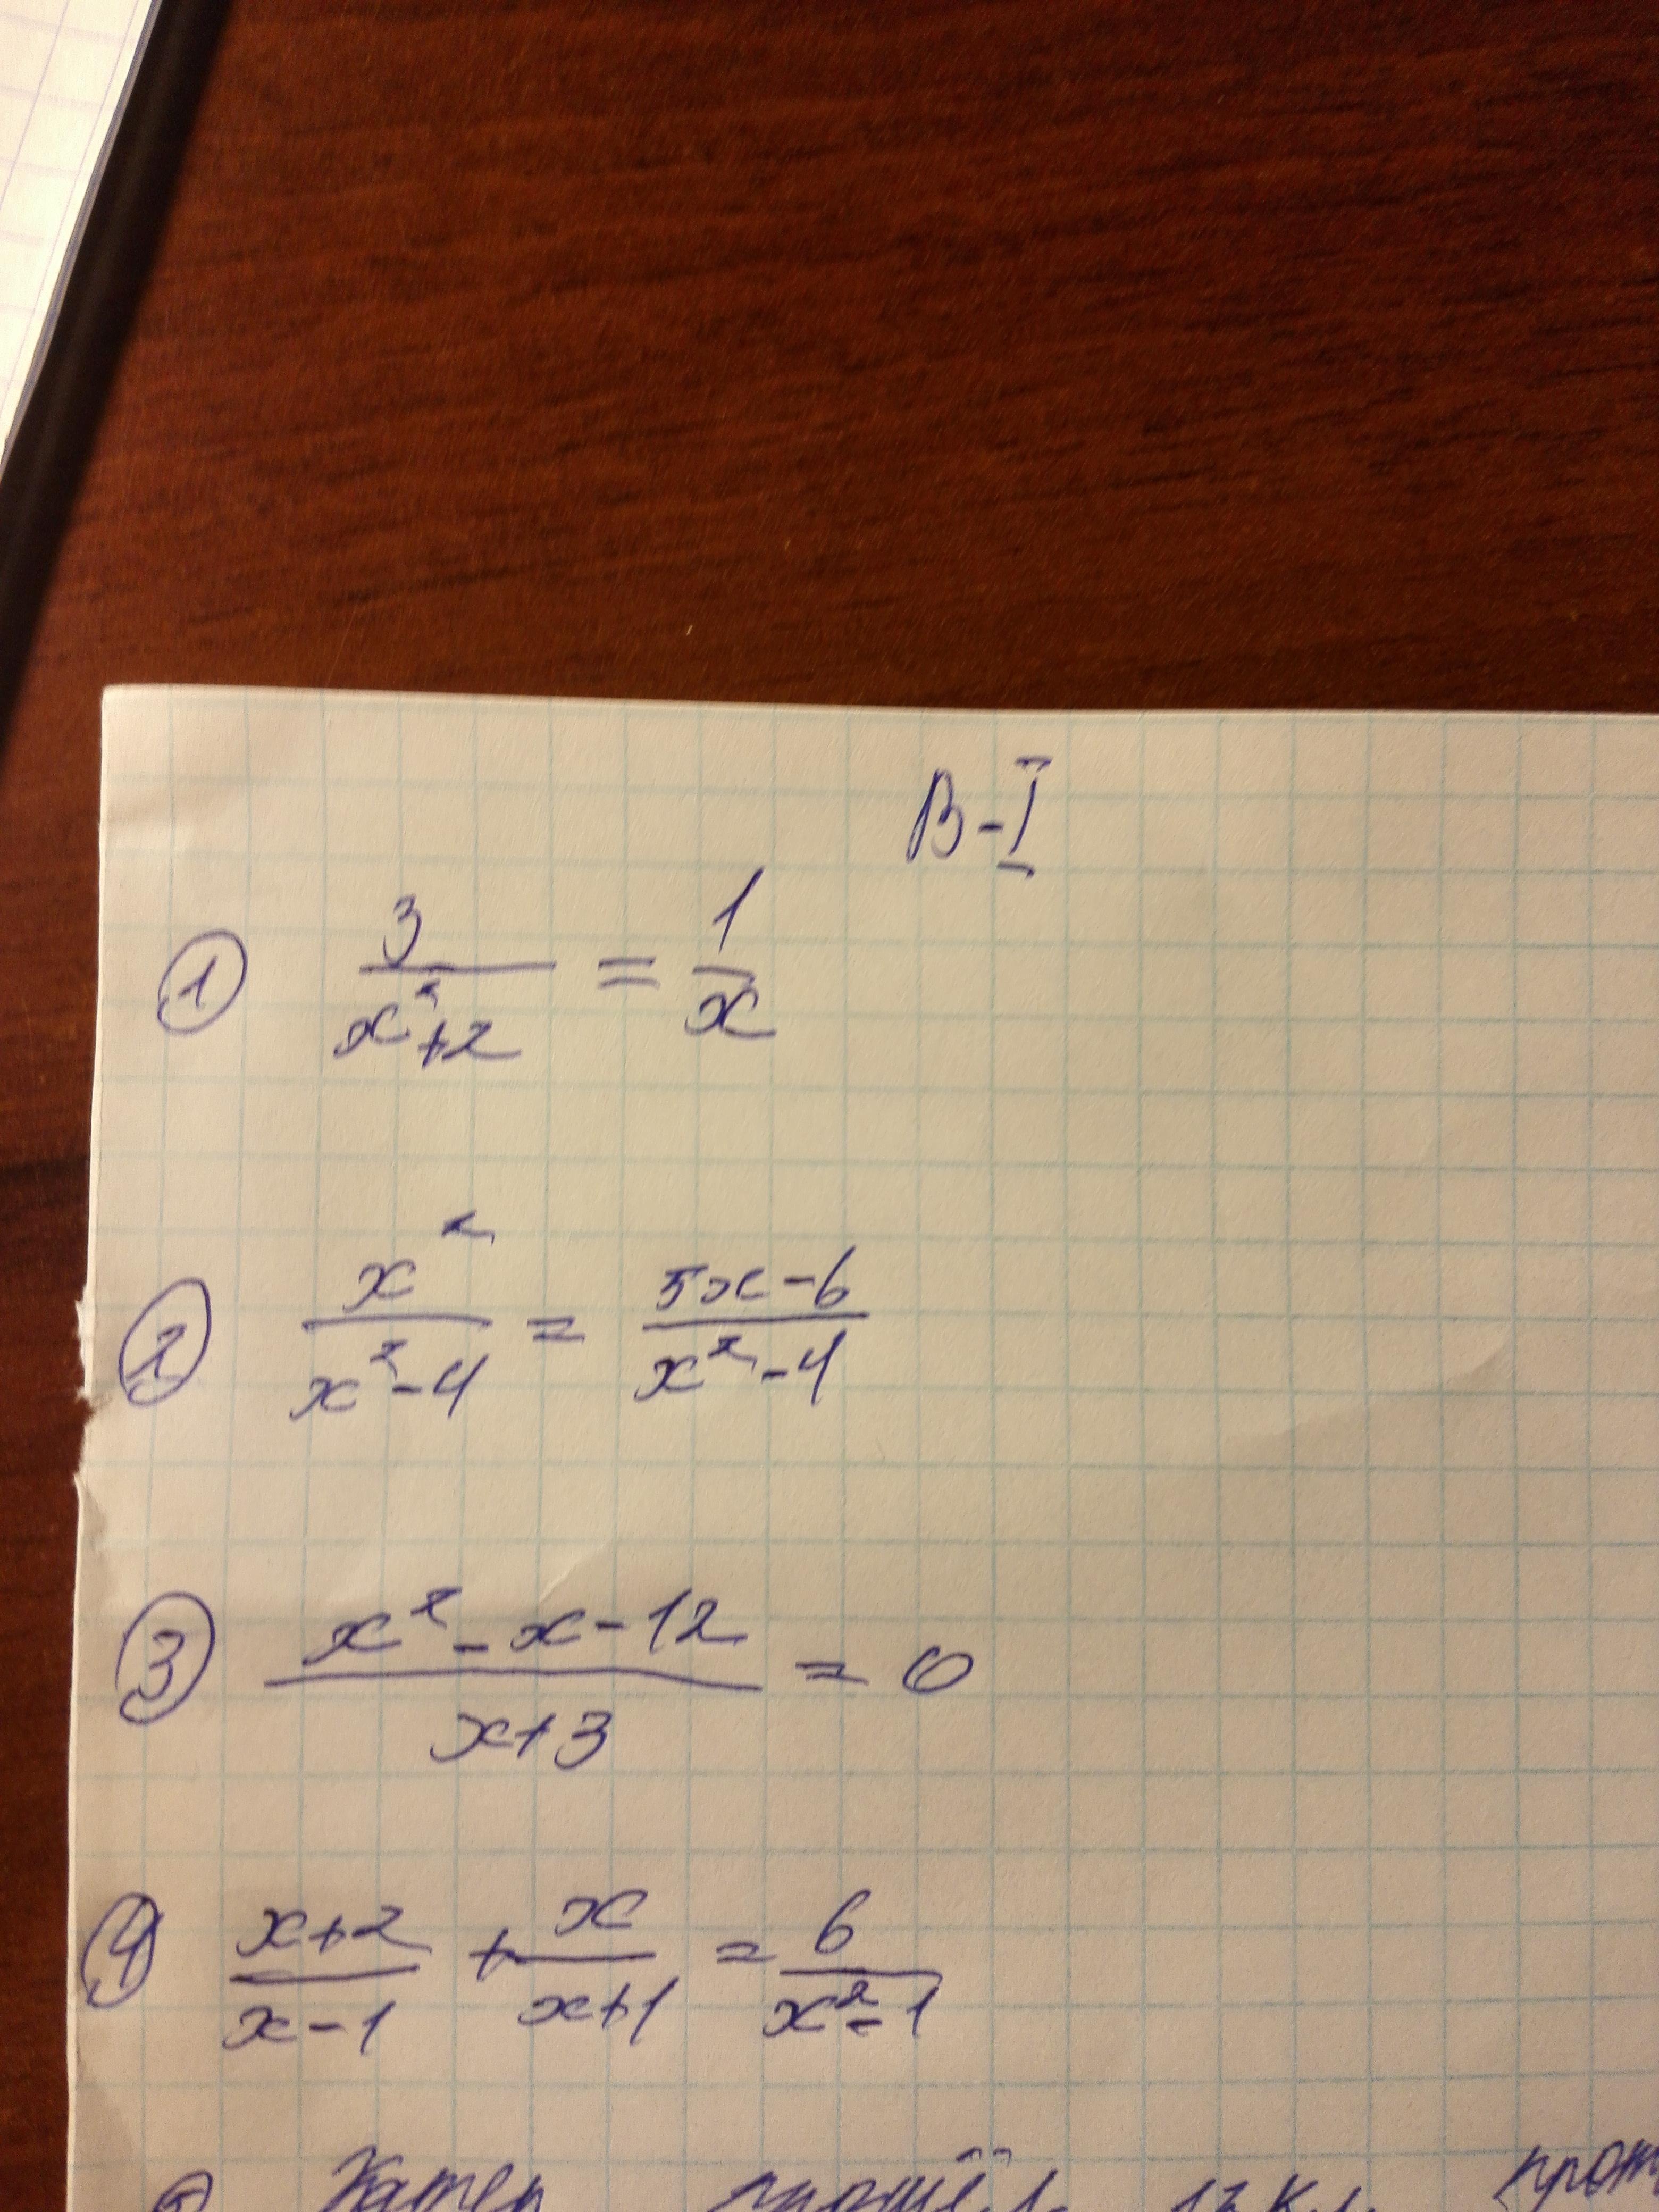 В-I
① 3/(x²+2) = 1/x
② x²/(x²-4) = (5x-6)/(x²-4)
③ (x²-x-12)/(x+3) = 0
④ (x+2)/(x-1) + x/(x+1) = 6/(x²-1)
Катер прошёл